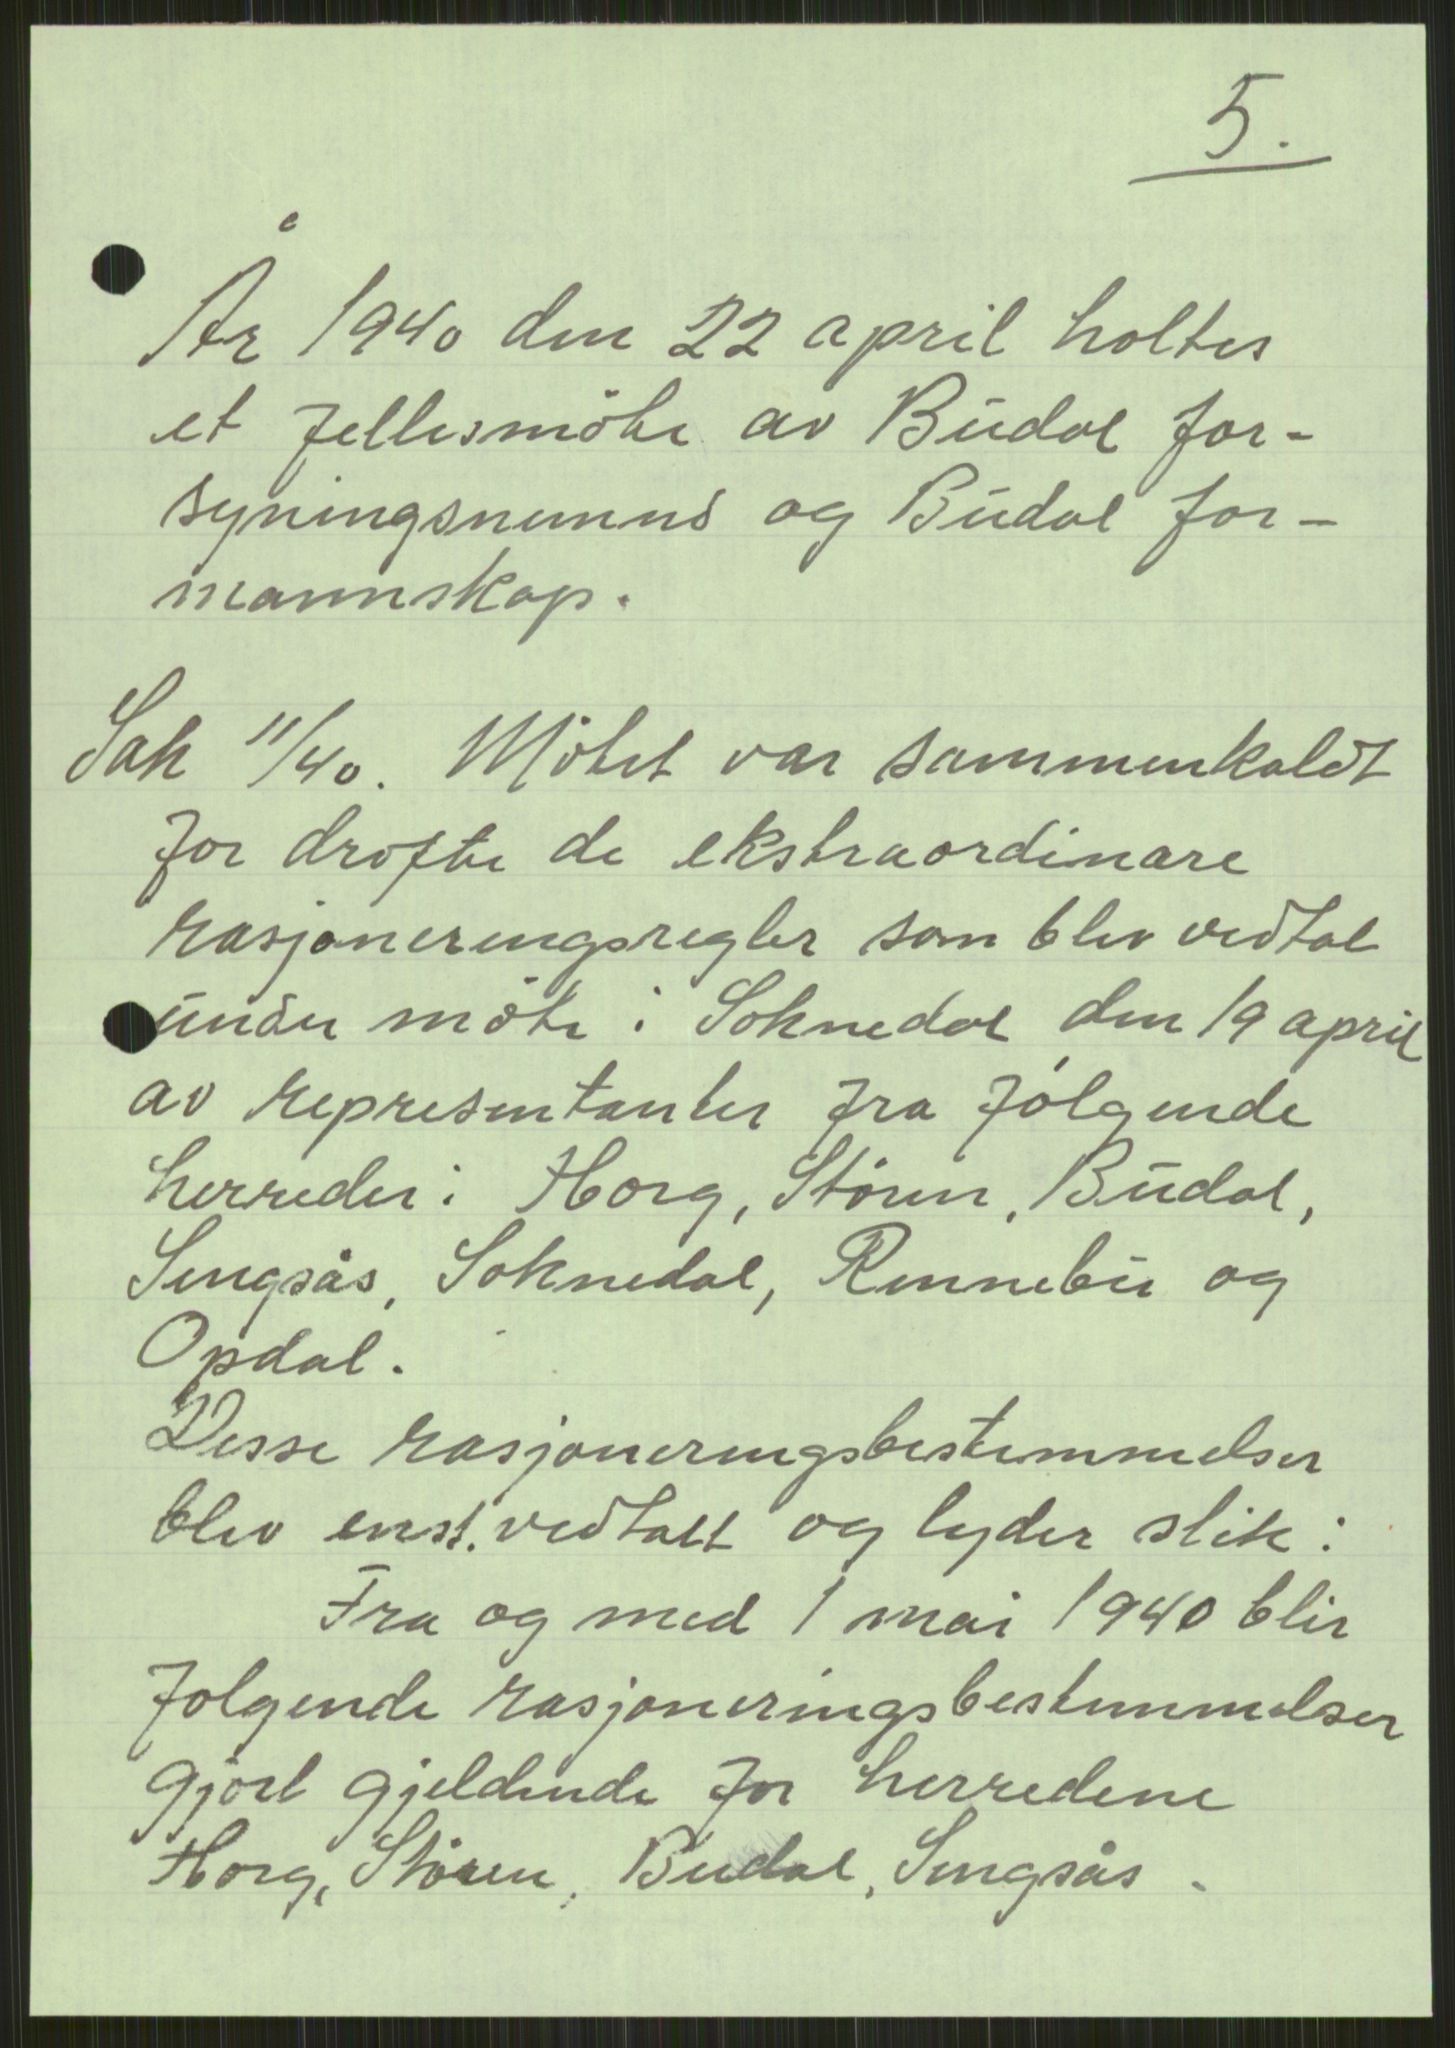 5.
År 1940 den 22 april holtes
et fellesmöte av Budal for-
syningsnemnd og Budal for-
mannskap.
Sak 11/40. Mötet var sammenkaldt
for drøfte de ekstraordinære
rasjoneringsregler som blev vedtat
under möte i Soknedal den 19 april
av representanter fra følgende
herreder: Horg, Stören, Budal,
Singsås, Soknedal, Rennebu og
Opdal.
Disse rasjoneringsbestemmelser
blev enst. vedtatt og lyder slik:
Fra og med 1 mai 1940 blir
følgende rasjoneringsbestemmelser
gjort gjeldende for herredene
Horg, Stören, Budal, Singsås.